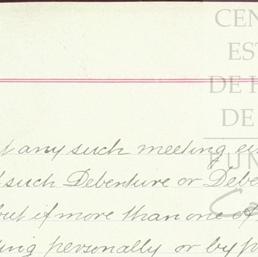 CEN
EST
DE H
DE
FUN
t any such meeting e
such Debenture or Debe
but if more than one of
ing personally or by p